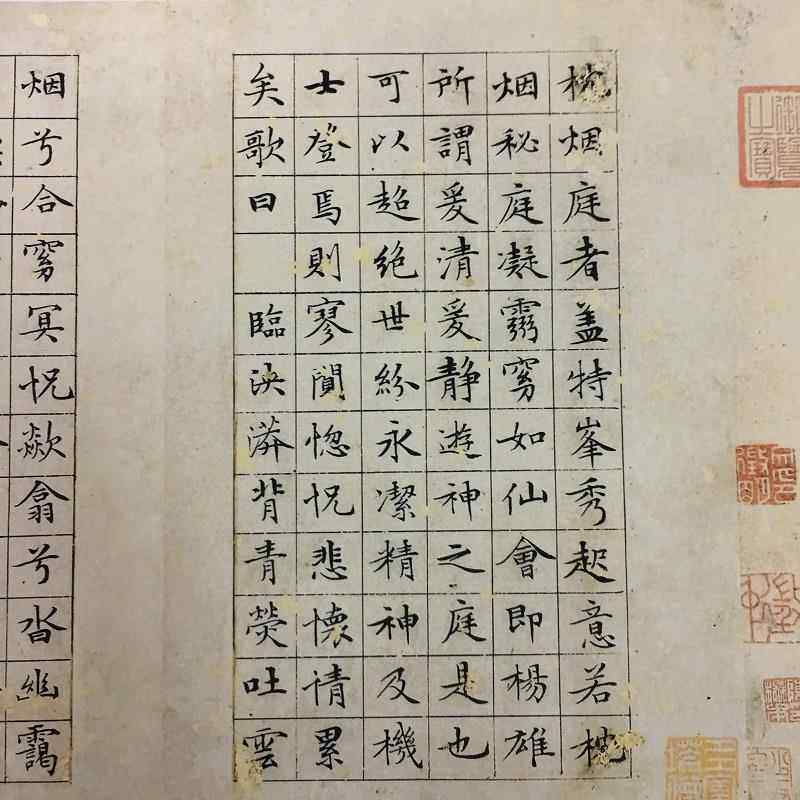 枕烟庭者盖特峯秀起意若枕
烟秘庭凝霛窅如仙會即楊雄
所謂爰清爰静遊神之庭是也
可以超絶世紛永潔精神及機
士登焉則寥閴惚怳悲懷情累
矣歌曰 臨泱漭背青熒吐雲
烟兮合窅冥怳歘翕兮沓幽靄